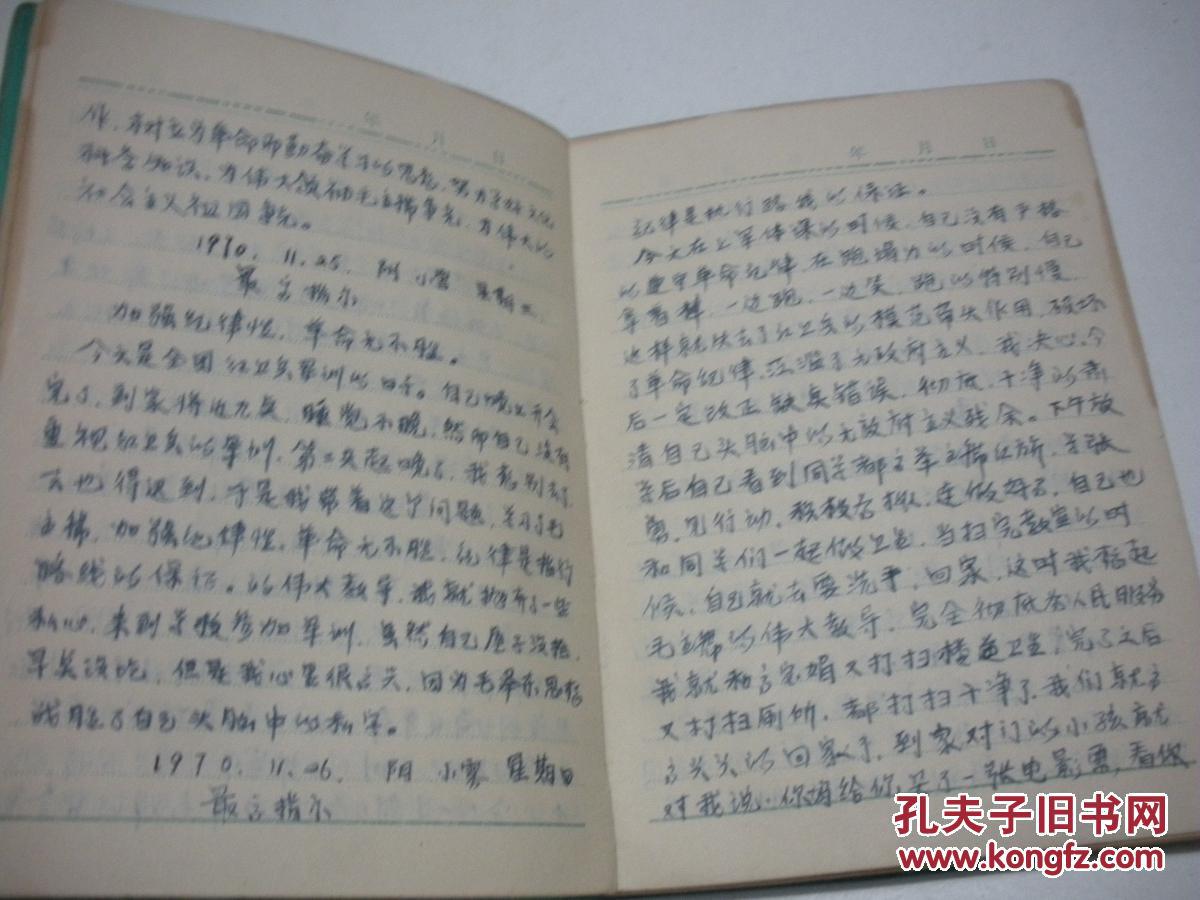 年 月 日
作，树立为革命而勤奋学习的思想，努力学好文化
科学知识，为伟大领袖毛主席争光，为伟大的
社会主义祖国争光。
1970. 11. 25. 阴 小雪 星期三
最高指示
加强纪律性，革命无不胜。
今天是全团红卫兵军训的日子。自己晚上开会
完了，到家将近九点，睡觉不晚，然而自己没有
重视红卫兵的军训，第二天起晚了，我想别去了，
去也得迟到，于是我带着这个问题，学习了毛
主席，加强纪律性，革命无不胜，纪律是执行
路线的保证。的伟大教导，我就抛弃了一些
私心，来到学校参加军训，虽然自己
早点没吃，但是我心里很高兴，因为毛泽东思想
战胜了自己头脑中的私字。
1970. 11. 26. 阴 小雪 星期四
最高指示
年 月 日
纪律是执行路线的保证。
今天在上军体课的时候，自己没有严格
的遵守革命纪律，在跑步的时候，自己
拿着棒，一边跑，一边笑，跑的特别慢，
这样就失去了红卫兵的模范带头作用，破坏
了革命纪律，泛滥了无政府主义，我决心，今
后一定改正缺点错误，彻底，干净的肃
清自己头脑中的无政府主义残余。下午放
学后自己看到同学都主席红旗，学张
勇，见行动，积极，连做好了，自己也
和同学们一起做卫生，当扫完教室的时
候，自己就去要洗手，回家，这时我想起
毛主席的伟大教导，完全彻底为人民服务
我就和高宝娟又打扫楼道卫生，完了之后
又打扫厕所，都打扫干净了，我们就高
高兴兴的回家了，到家对门的小孩就
对我说，你妈给你买了一张电影票，看
孔夫子旧书网
www.kongfz.com